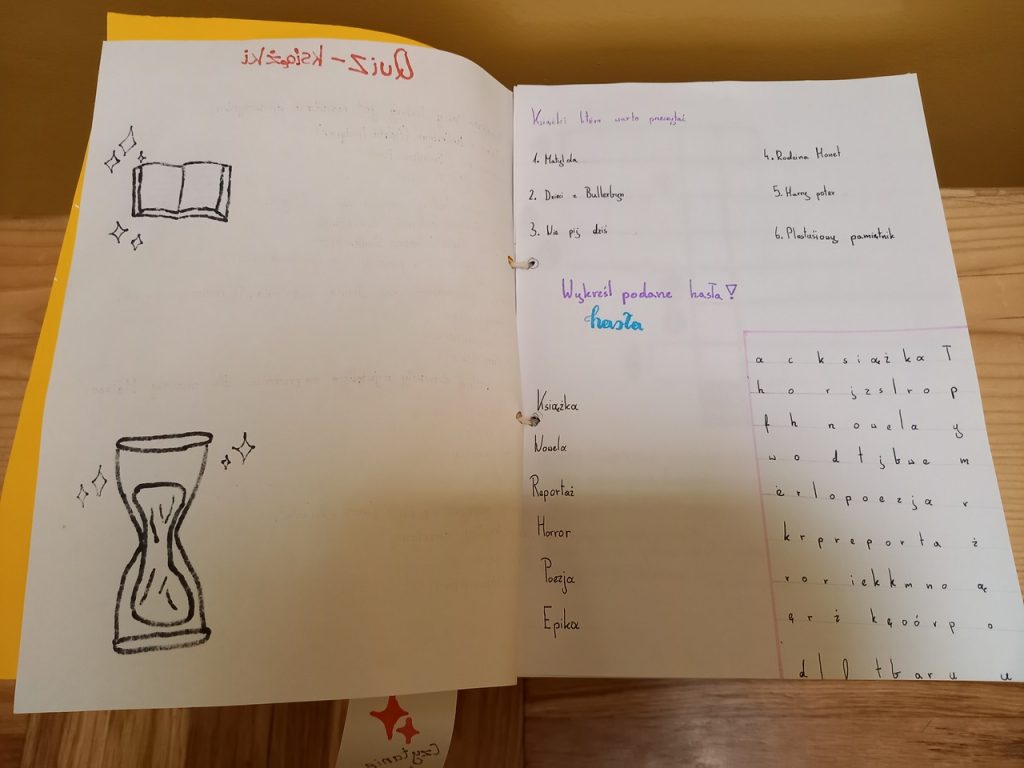 Quiz - książki
Książki które warto przeczytać
1. Matylda
2. Dzieci z Bullerbyn
3. Nie pij dziś
4. Rodzina Monet
5. Harry poter
6. Plastusiowy pamiętnik
Wykreśl podane hasła!
hasła
Książka
Nowela
Reportaż
Horror
Poezja
Epika
a c k s i ą ż k a T
h o r j z s l r o p
f h n o w e l a y
w o d t j b w e m
e r l o p o e z j a r
k r p r e p o r t a ż
r o r i e k k m n o ą
ę r ż k ę o ó r p o
d l t b a r u u
Czytania